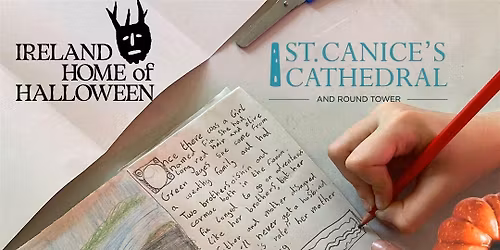 IRELAND
HOME of
HALLOWEEN
ST. CANICE'S
CATHEDRAL
AND ROUND TOWER
Once there was a Girl
named she had
long red hair and olive
Green eyes she came from
a wealthy family and had
Two brothers, oisin and
cormac both in the
She longed to go on adventures
like her brothers, but her
and mother disagreed
never get a husband
her mother